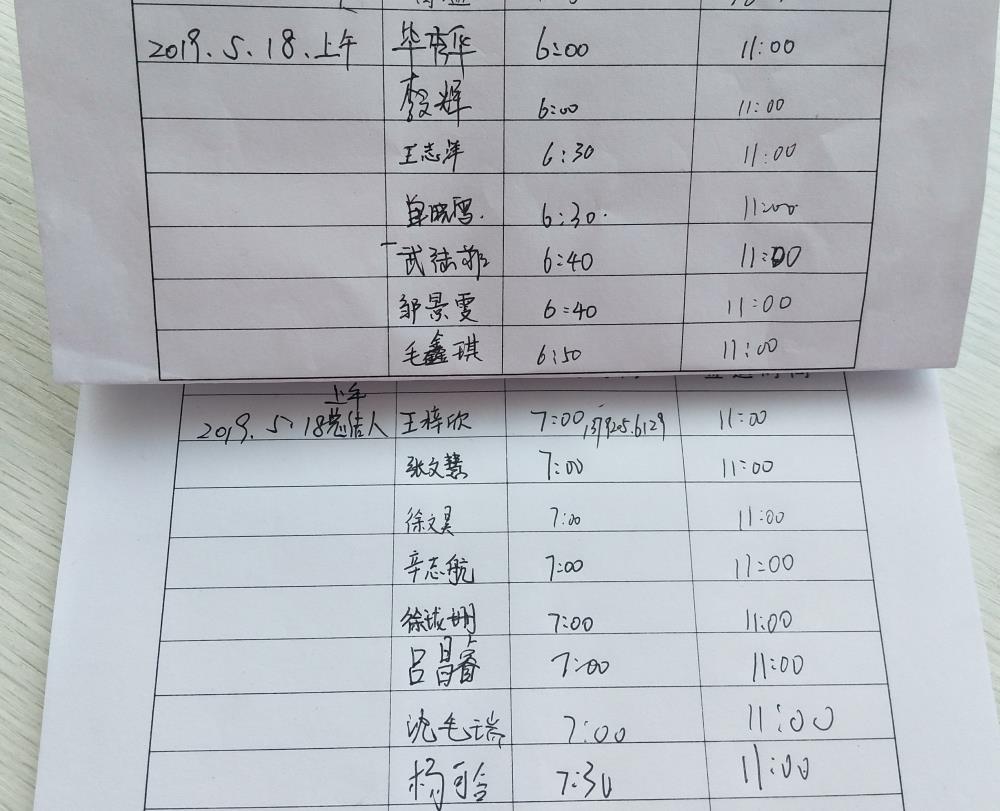 2019.5.18.上午 毕秀华 6:00 11:00
李辉 6:00 11:00
王志洋 6:30 11:00
单晓雪. 6:30. 11:00
武陆 6:40 11:00
邹景雯 6:40 11:00
毛鑫琪 6:50 11:00
上午
2019.5.18 人 王梓欣 7:00 11:00
张文慧 7:00 11:00
徐文昊 7:00 11:00
辛志航 7:00 11:00
徐珊 7:00 11:00
吕昌睿 7:00 11:00
沈毛瑞 7:00 11:00
杨可含 7:30 11:00